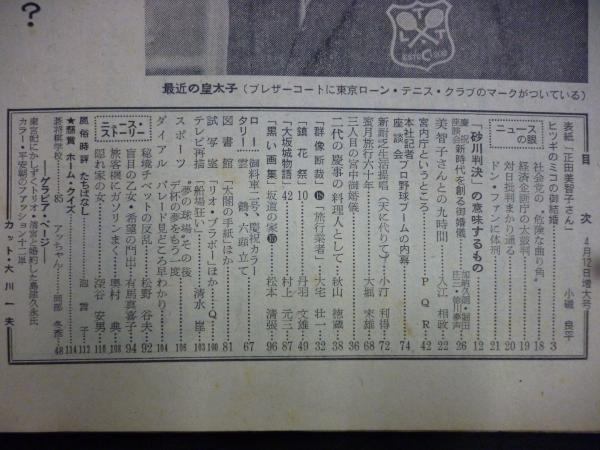 ?
TLTC
ESTD
最近の皇太子(ブレザーコートに東京ローン・テニス・クラブのマークがついている)
目次 4月12日増大号
表紙「正田美智子さん」 小磯良平
ヒツギのミコの御結婚 3
ニュースの眼
社会党の“危険な曲り角” 18
経済企画庁の太鼓判 19
対日批判まかり通る 20
ドン・ファンに体刑 21
「砂川判決」の意味するもの 12
慶祝座談会 新時代を創る御婚儀 26
美智子さんとの九時間 入江相政 22
宮内庁というところ PQR 42
本社記者座談会 プロ野球ブームの内幕 74
新耐乏生活提唱(天に代りて) 小汀利得 72
蜜月旅行六十年 大堀末雄 68
三人目の宮中御婚儀 36
二代の慶事の料理人として 秋山徳蔵 38
「群像断裁」⑮“旅行業者” 大宅壮一 32
「鏡花祭」10 丹羽文雄 49
「大坂城物語」42 村上元三 87
「黒い画集」坂道の家⑯ 松本清張 96
ロータリー 御料車二号、慶祝カラー 雲鶴、六頭立て 67
図書館 「太閤の手紙」ほか 81
試写室 「リオ・ブラボー」ほか Q 100
テレビ再描 「船場狂い」 清水崑 103
スポーツ “夢の球場”その後 106
デ杯の夢をもう一度 108
ダイアル パレード見どころ早わかり 104
ニュース・ストーリー
秘境チベットの反乱 松野谷夫 92
盲目の乙女・希望の門出 有馬真喜子 94
旅客機にガソリンまく 奥村典 108
隠れ家の女 深谷安男 110
風俗時評 たちばなし 泡言子 112
★懸賞 ホーム・クイズ 114
碁将棋学校…85 アッちゃん…岡部冬彦…48
――グラビア・ページ――
東宮妃にかしずくトリオ・清宮と婚約した島津久永氏
カラー・平安朝のファッション十二単
カット・大川一夫